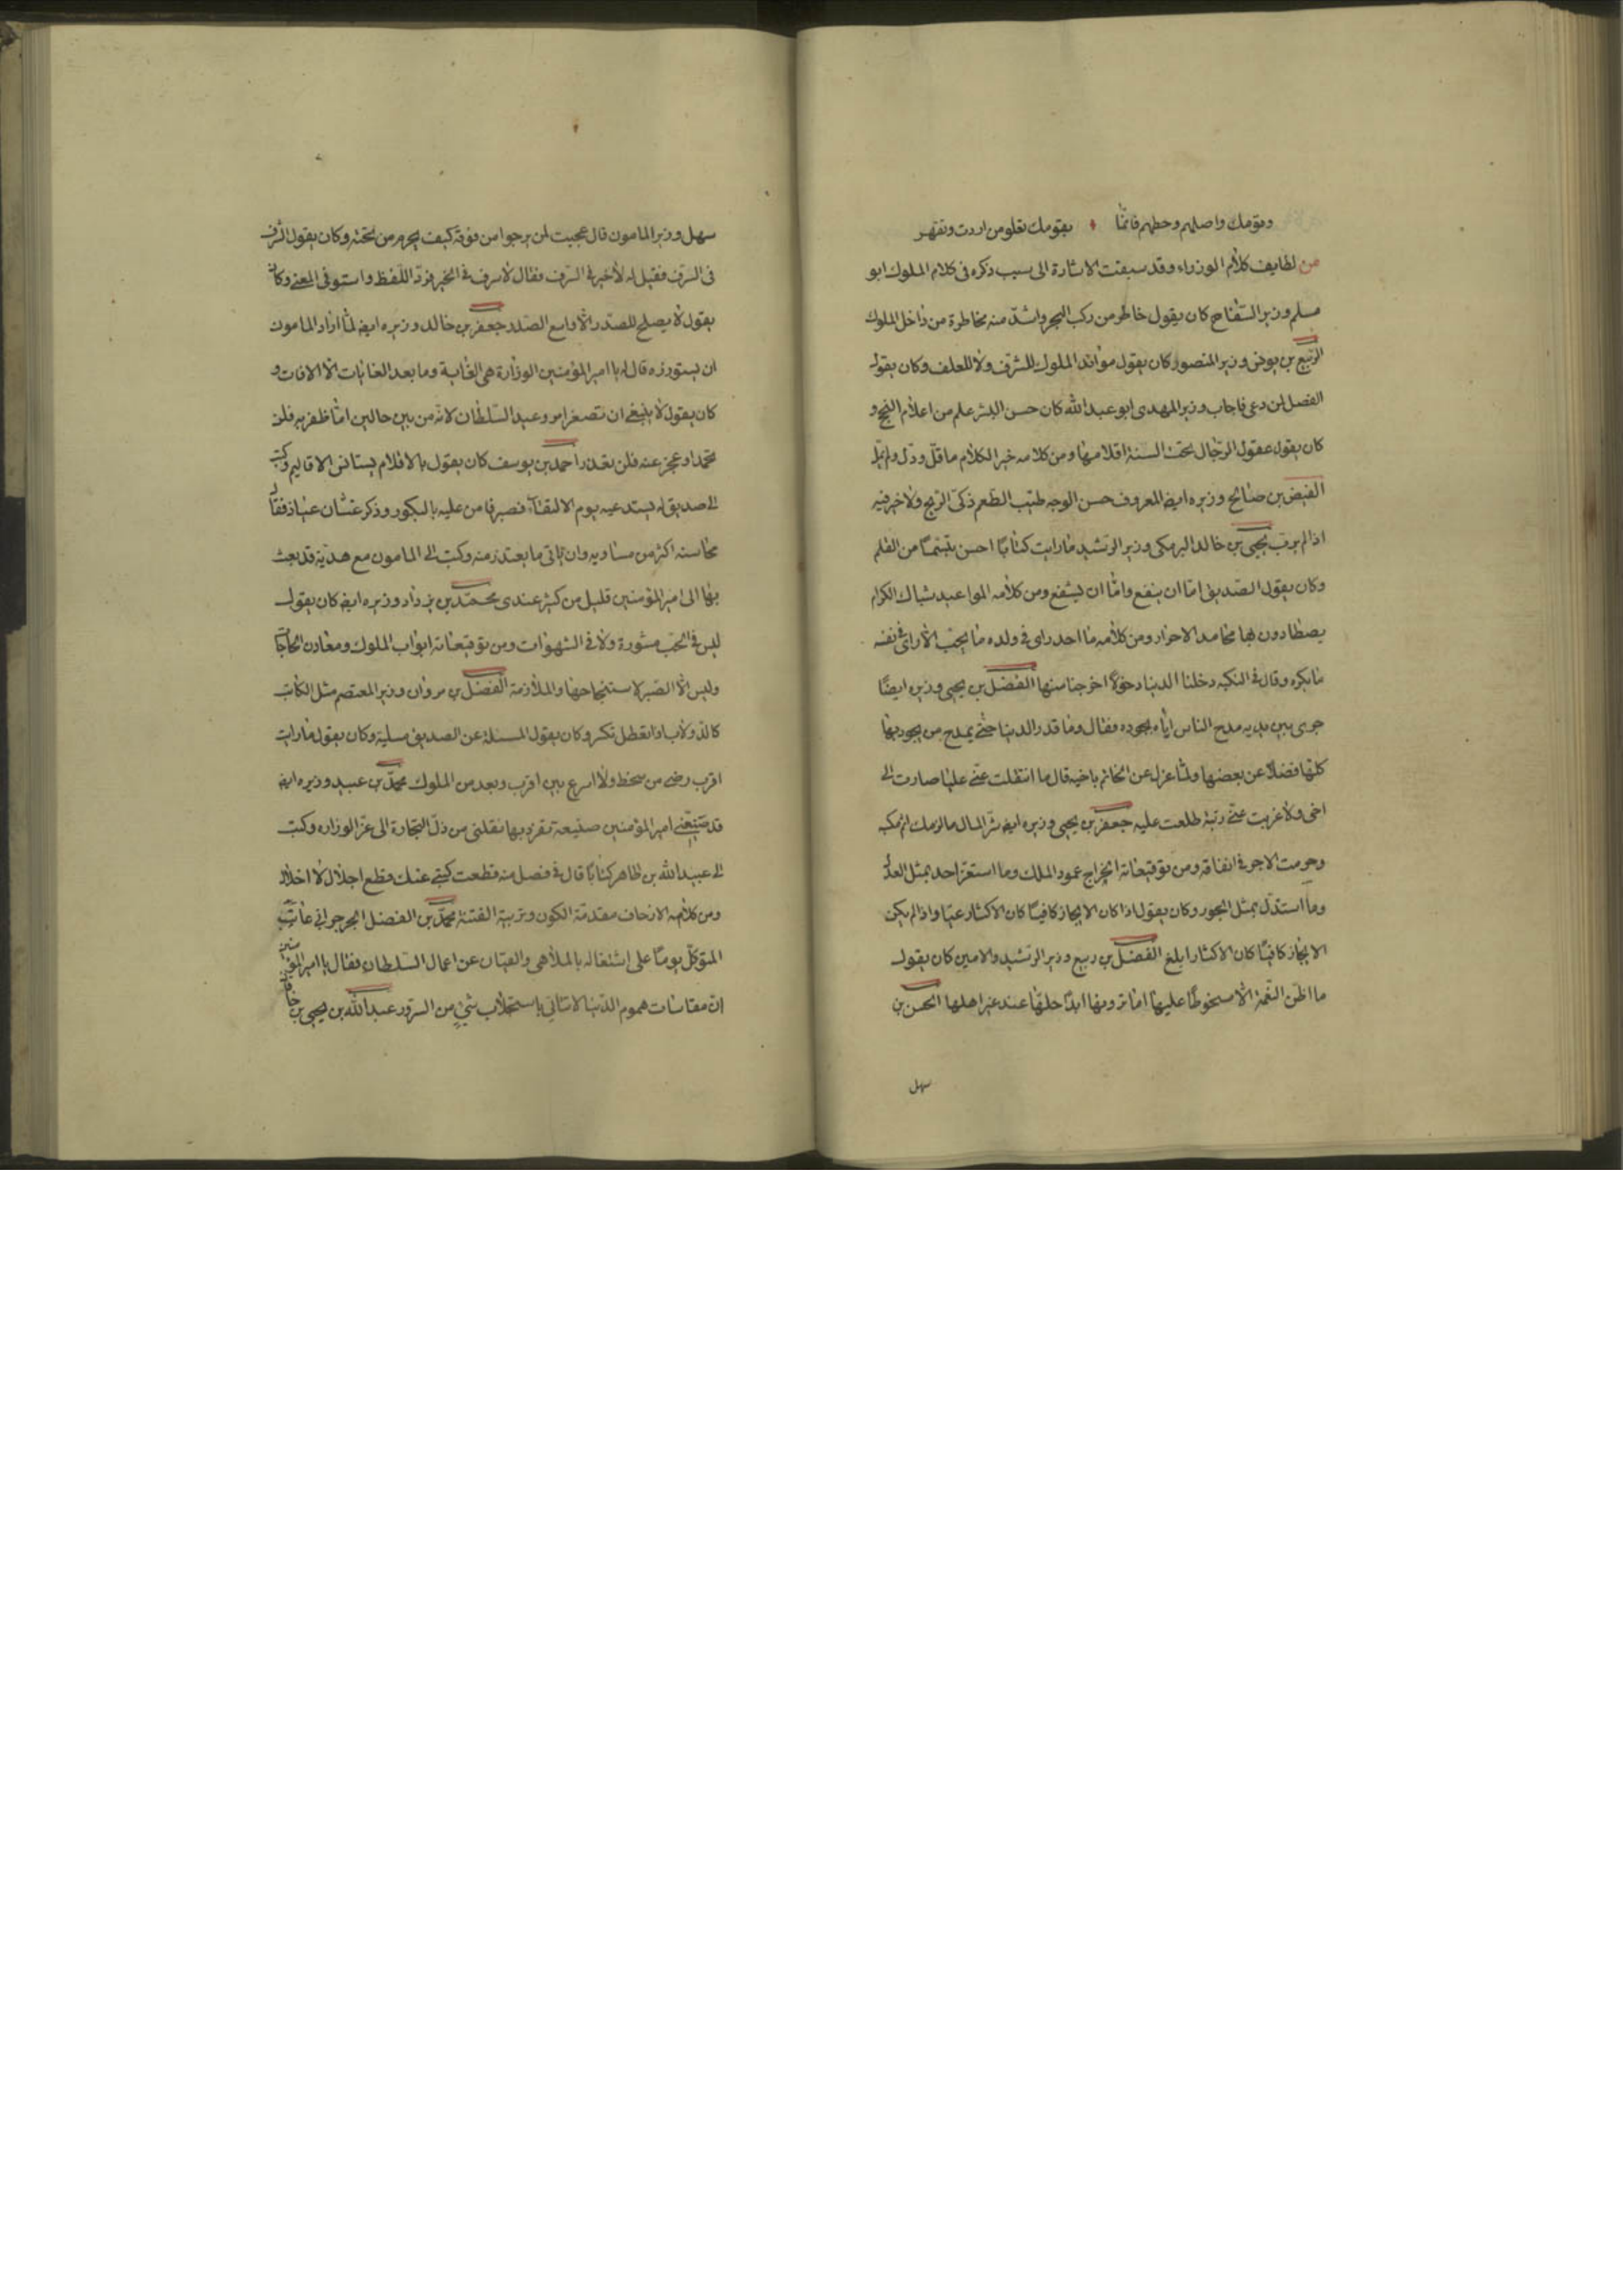 وقومك واصلهم وحطهم فانما بقومك تعلو من اردت وتقهر
من لطايف كلام الوزراء وقد سبقت الاشارة الى سبب ذكره فى كلام الملوك ابو
مسلم وزير السفاح كان يقول خاطر من ركب البحر واشد منه مخاطرة من داخل الملوك
الربيع بن يونس وزير المنصور كان يقول موائد الملوك للشرف ولا للعلف وكان يقول
الفضل لمن دعى فاجاب وزير المهدى ابو عبد الله كان حسن البشر علم من اعلام النجح و
كان يقول عقول الرجال تحت السنة اقلامها ومن كلامه خير الكلام ما قل ودل ولم يمل
الفيض بن صالح وزيره ايضا المعروف حسن الوجه طيب الطعم ذكى الريح ولا خير فيه
اذا لم يرب يحيى بن خالد البرمكى وزير الرشيد ما رايت كتابا احسن تبسما من القلم
وكان يقول الصديق اما ان ينفع واما ان يشفع ومن كلامه المواعيد شباك الكرام
يصطادون بها محامد الاحرار ومن كلامه ما احد راى فى ولده ما يحب الا راى فى نفسه
ما يكره وقال فى النكبه دخلنا الدنيا دخولا اخرجنا منها الفضل بن يحيى وزيره ايضا
جرى بين يديه مدح الناس اياه بجوده فقال وما قدر الدنيا حتى يمدح من يجود بها
كلها فضلا عن بعضها ولما عزل عن الخاتم باخيه قال ما انتقلت عنى عليا صارت الى
اخى ولا غربت عنى رتبة طلعت عليه جعفر بن يحيى وزيره ايضا شر المال ما لزمك اثم مكسبه
وحرمت الاجر فى انفاقه ومن توقيعاته الخراج عمود الملك وما استغزر احد بمثل العدل
وما استذل بمثل الجور وكان يقول اذا كان الايجاز كافيا كان الاكثار عيا واذا لم يكن
الايجاز كافيا كان الاكثار ابلغ الفضل بن ربيع وزير الرشيد والامين كان يقول
ما اظن النعمة الا مسخوطا عليها اما ترونها ابدا حلتها عند غير اهلها الحسن بن
سهل
سهل وزير المامون قال عجبت لمن يرجو من فوقه كيف يحرم من تحته وكان يقول الشرف
فى السرف فقيل له لا خير فى السرف فقال لا سرف فى الخير فرد اللفظ واستوفى المعنى وكان
يقول لا يصلح للصدر الا واسع الصدر جعفر بن خالد وزيره ايضا لما اراد المامون
ان يستوزره قال له يا امير المؤمنين الوزارة هى الغاية وما بعد الغايات الا الافات و
كان يقول لا ينبغى ان تصغر امر وعبد السلطان لانه من بين حالين اما ظفر به فلن
تحمد او عجز عنه فلن تعذر احمد بن يوسف كان يقول بالاقلام تساس الاقاليم وكتب
الى صديق له يستدعيه يوم الالتقاء فصيرها من عليه بالبكور وذكر غسان عباد فقال
محاسنه اكثر من مساويه وان ياتى ما يعتذر منه وكتب الى المامون مع هدية قد بعثت
بها الى امير المؤمنين قليل من كثير عندى محمد بن يزداد وزيره ايضا كان يقول
ليس فى الحب مشورة ولا فى الشهوات ومن توقيعاته ابواب الملوك ومعادن الحاجات
وليس الا الصبر لاستنجاحها والملازمة الفضل بن مروان وزير المعتصم مثل الكاتب
كالدولاب اذا تعطل تكسر وكان يقول المسئلة عن الصديق مسلية وكان يقول ما رايت
اقرب رضى من سخط ولا اسرع بين اقرب وبعد من الملوك محمد بن عبيد وزيره ايضا
قد صنعنى امير المؤمنين صنيعة تفرد بها نقلنى من ذل التجارة الى عز الوزارة وكتب
الى عبيد الله بن طاهر كتابا قال فى فصل منه قطعت كتبى عنك قطع اجلال لا اخلال
ومن كلامه الارجاف مقدمة الكون وتربية الفتنة محمد بن الفضل الجرجرانى عاتبه
المتوكل يوما على اشتغاله بالملاهى والقيان عن اعمال السلطان فقال يا امير المؤمنين
ان مقاسات هموم الدنيا لا تتأتى باستجلاب شئ من السرور عبد الله بن يحيى بن خاقان